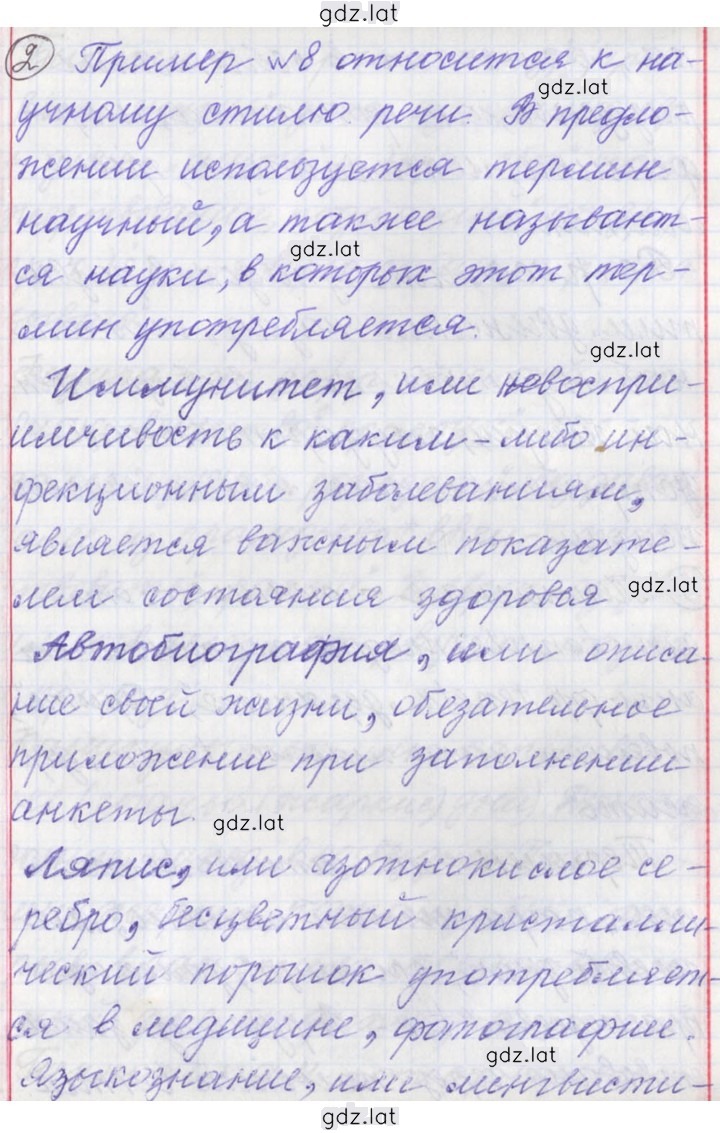 gdz.lat
2 Пример №8 относится к на-
gdz.lat
учному стилю речи. В предло-
жении используется термин
научный, а также называют-
gdz.lat
ся науки, в которых этот тер-
мин употребляется.
gdz.lat
Иммунитет, или невоспри-
имчивость к каким-либо ин-
фекционным заболеваниям,
является важным показате-
gdz.lat
лем состояния здоровья
Автобиография, или описа
ние своей жизни, обязательное
приложение при заполнении
анкеты.
gdz.lat
Ляпис, или азотнокислое се-
ребро, бесцветный кристалли-
ческий порошок употребляет-
ся в медицине, фотографии.
gdz.lat
Языкознание, или лингвисти-
gdz.lat